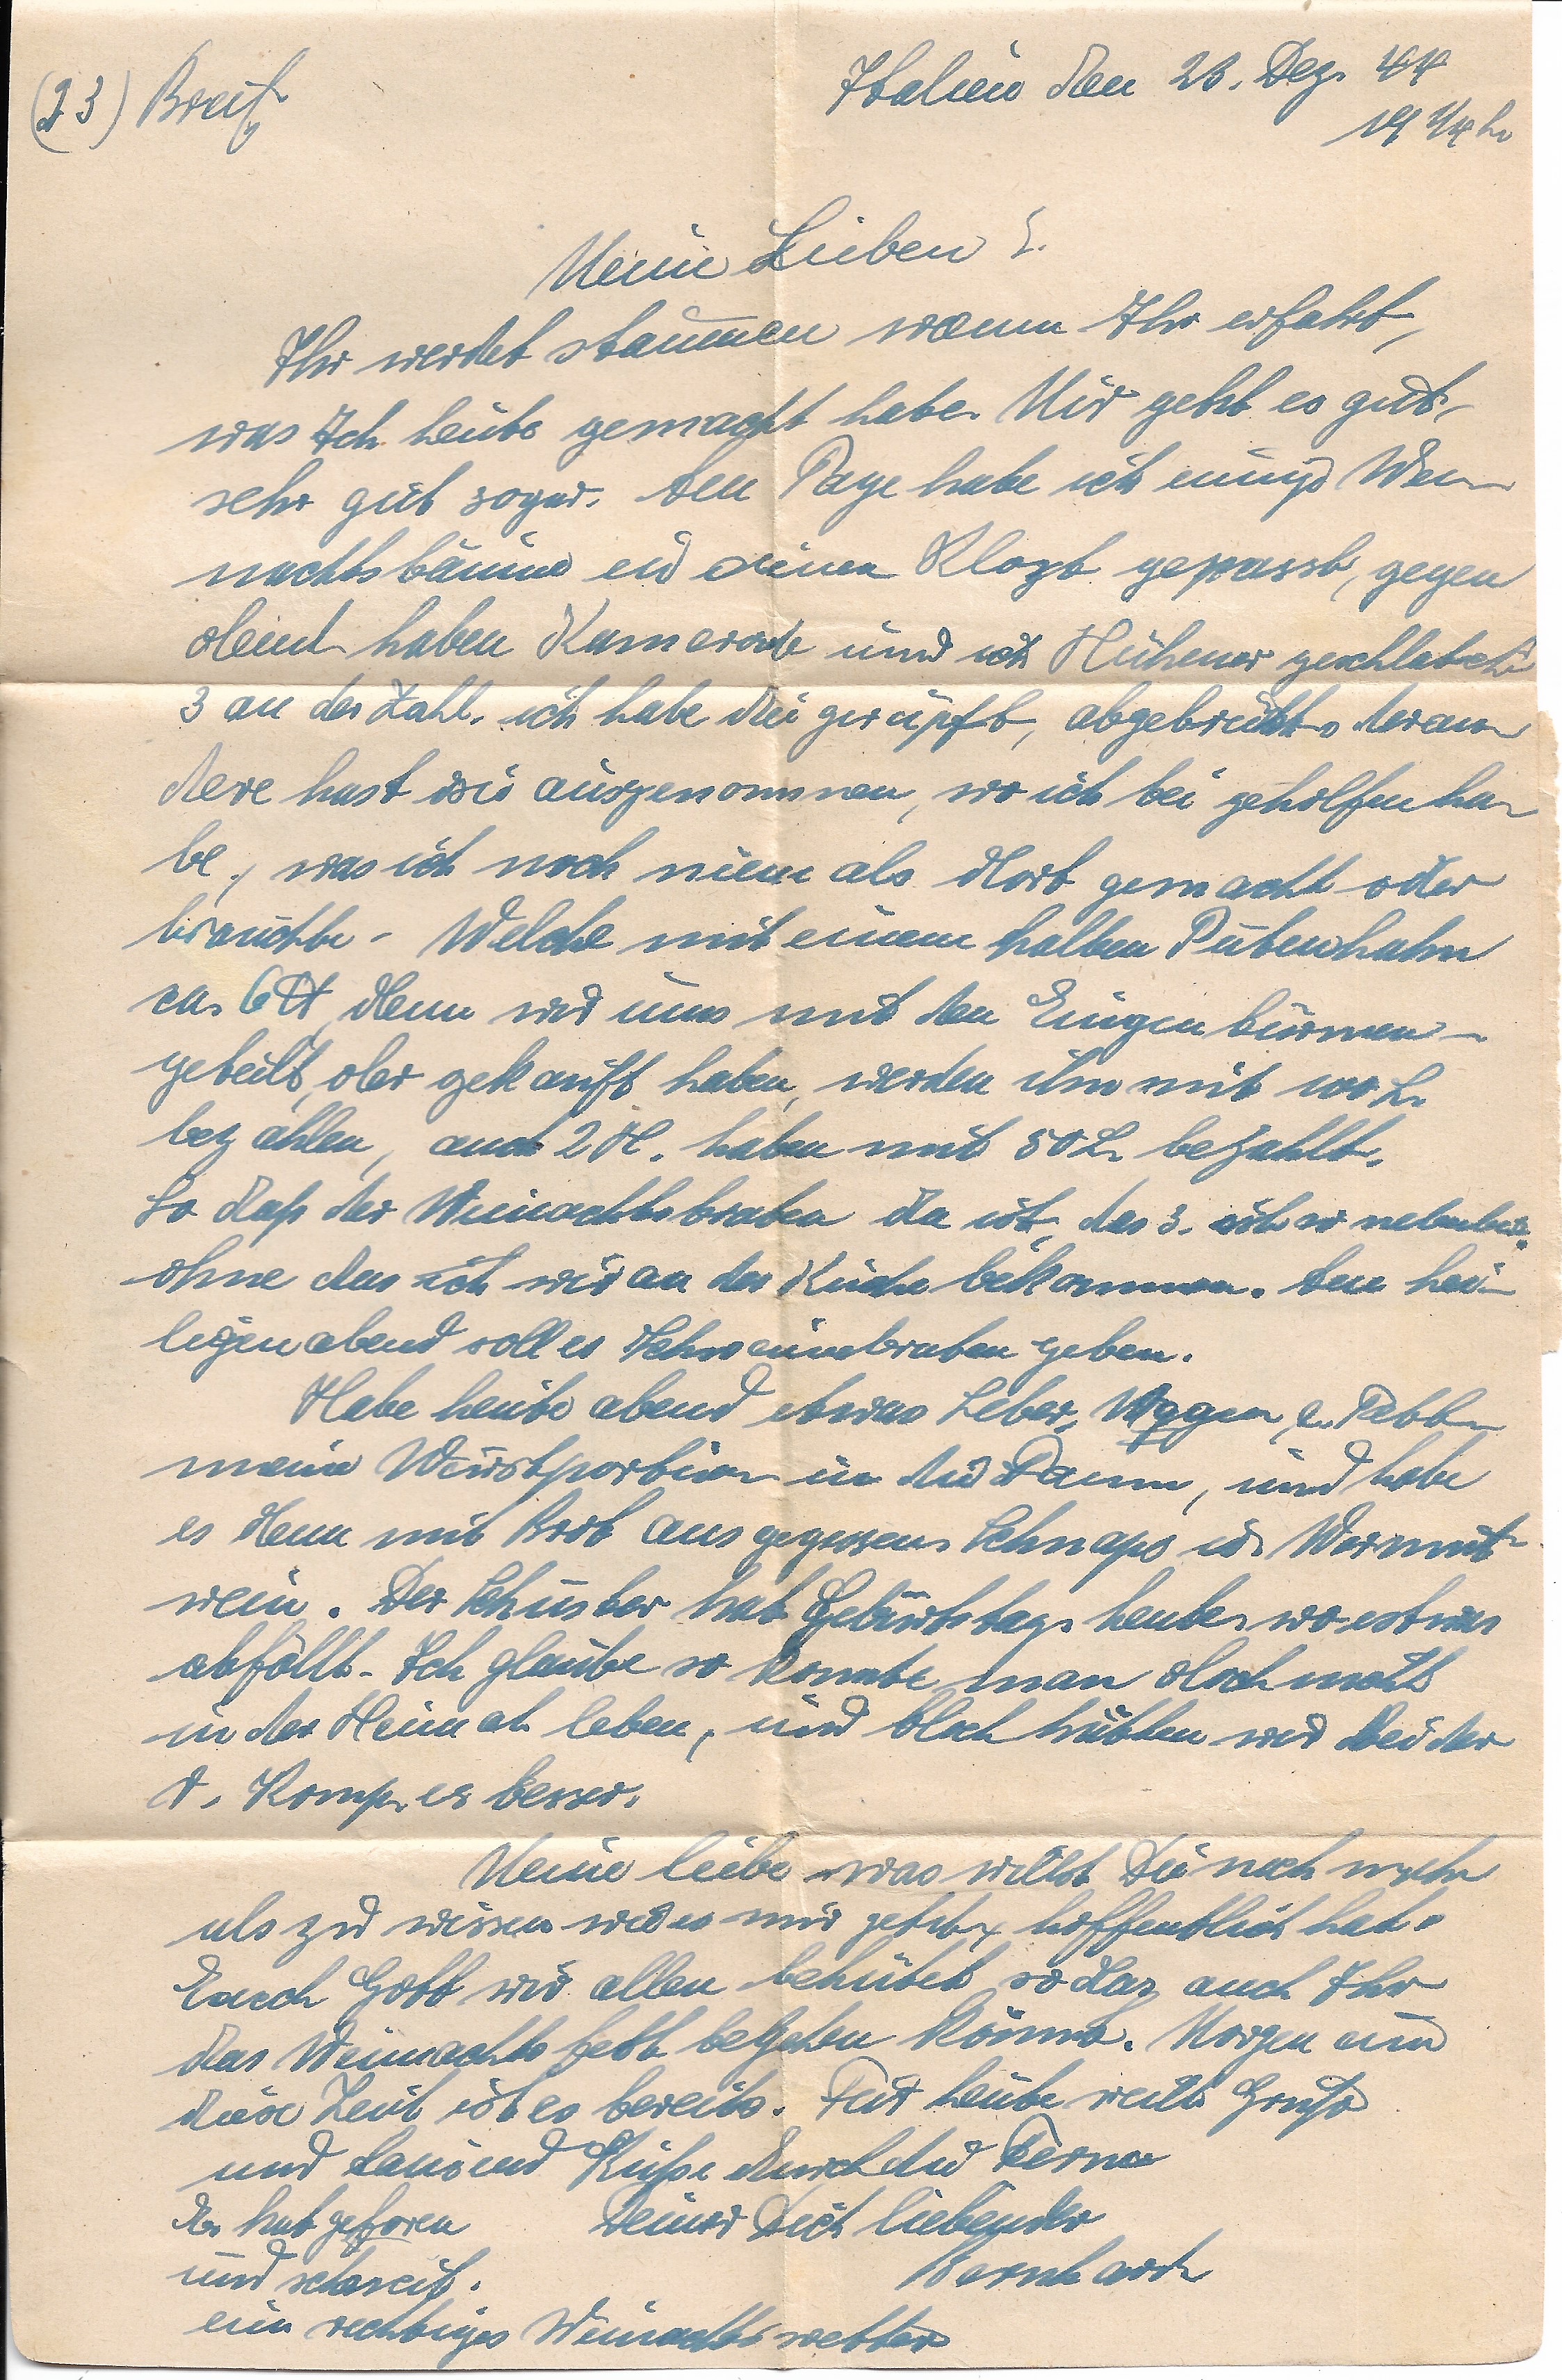 (23) Breif
Italien den 23. Dez. 44
19 1/4 h
Meine Lieben!
Ihr werdet staunnen wenn Ihr erfahrt,
was Ich heute gemacht habe. Mir geht es gut,
sehr gut sogar. Am Tage habe ich einige Wei-
nachtsbäume in einen Klozt gepasst, gegen
abend haben Kamerade und ich Hühener geschlatcht
3 an der Zahl. ich habe die gerupft, abgebrüht, deran
dere hast sie ausgenommen, wo ich bei geholfen ha
be, was ich noch niem als dort gemacht oder
brauchte. Welche mit einem halben Putenhahn
ca. 6 ℔ denn wir uns mit den
geteilt, ober gekauft haben, werden ihn mit 100 L.
bezahlen, auch 2 H. haben mit 50 L. bezahlt.
So daß der Weinachtsbraten da ist, das 3. ist so nebenbei.
ohne das ich wir an der Küche bekommen. Am hei-
ligen abend soll es Schweinebraten geben.
Habe heute abend etwas Leber, Magen, u. Fett
meine Wurstportion in die Pann, und habe
es denn mit Brot aus gegessen. Schnaps u. Wermut-
wein. Der Schuster hat Geburtstag. heute. wo estwas
abfällt. Ich glaube so konnte man doch nicht
in der Heimat leben, und doch hätten wir bei der
A. Komp. es besser.
Meine leibe was willst Du noch mehr
als zu wissen wie es mir geht, hoffentlich hat.
Euch Gott wir allen behütet so daz auch Ihr
das Weinachts fest begehen könnt. Morgen um
diese Zeit ist es bereits. Für heute recht Gruße
und tausend Küße durch die Ferne
Es hat gefroren Deiner Dich liebender
und schneit. Bernhard
ein rechtiges Weinachtswetter